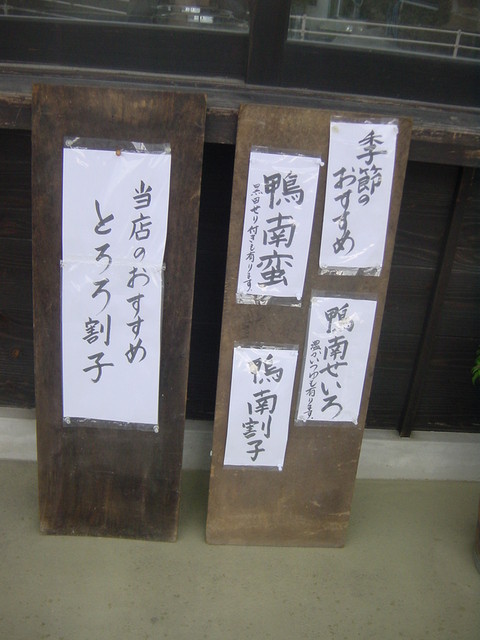 季節の
おすすめ
鴨南蛮
黒田せり付きも有ります
鴨南せいろ
温かいつゆも有ります
鴨南割子
当店のおすすめ
とろろ割子